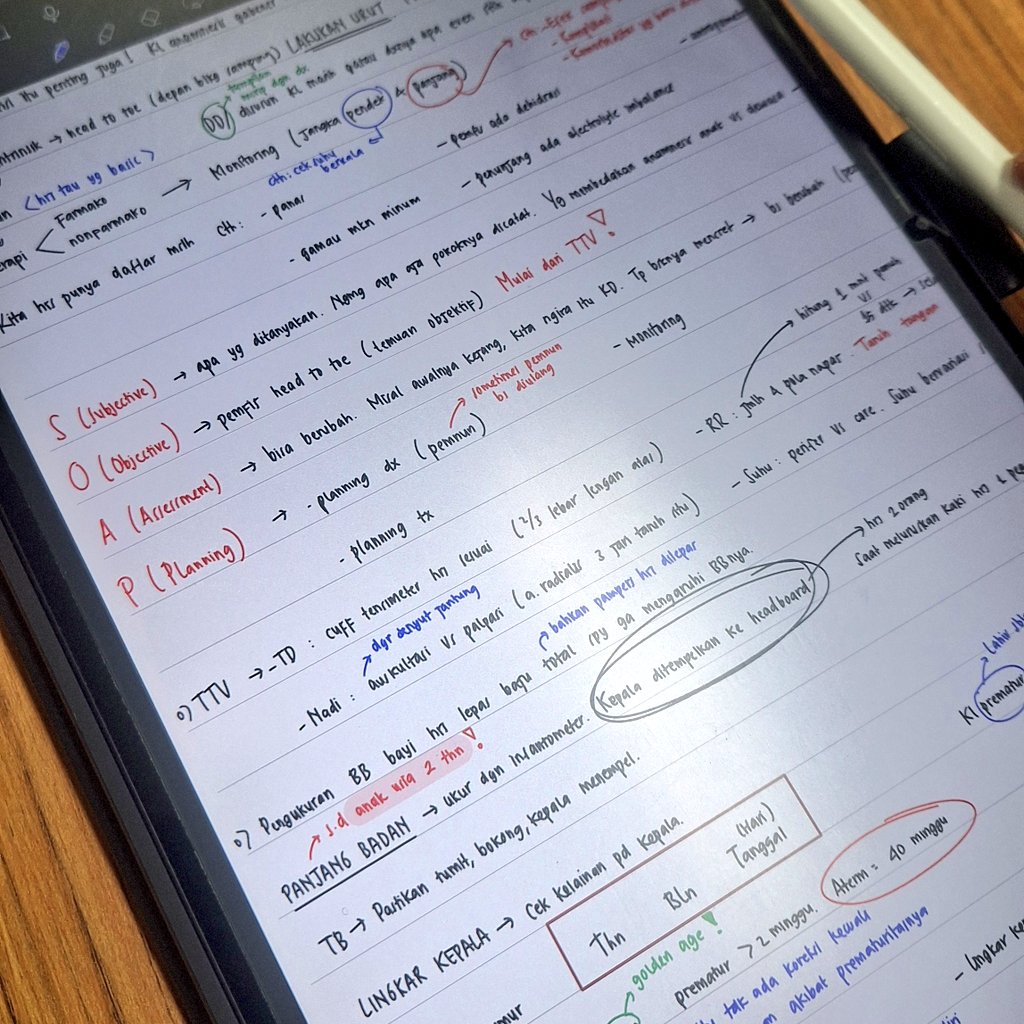 hri itu penting juga! Kl anamnesis
→ head to toe (depan blkg samping) LAKUKAN URUT
DD/
<hrs tau yg basic>
Farmako
nonfarmako → Monitoring (Jangka pendek & panjang)
cth: cek suhu berkala
Kita hrs punya daftar mslh cth: - panas - pemfis ada dehidrasi
- gamau mkn minum - penunjang ada electrolyte imbalance
S (Subjective) → apa yg ditanyakan. Ngmg apa aja pokoknya dicatat. Yg membedakan anamnesis anak vs dewasa
O (Objective) → pemfis head to toe (temuan objektif) Mulai dari TTV!
A (Assessment) → bisa berubah. Misal awalnya kejang, kita ngira itu KD. Tp bsknya mencret → bs berubah
P (Planning) → - planning dx (pemnun) - Monitoring
sometimes pemnun bs diulang
- planning tx
o) TTV → - TD : cuff tensimeter hrs sesuai (2/3 lebar lengan atas)
- RR : jmlh & pola napas. Taruh tangan
hitung 1 mnt penuh
vs
- Nadi : auskultasi vs palpasi (a. radialis 3 jari taruh situ)
dgr denyut jantung
- Suhu : perifer vs core. Suhu bervariasi
o) Pengukuran BB bayi hrs lepas baju total spy ga mengaruhi BBnya.
bahkan pampers hrs dilepas
s.d anak usia 2 thn!
PANJANG BADAN → ukur dgn infantometer. Kepala ditempelkan ke headboard
hrs 2 orang
saat meluruskan kaki hrs
TB → Pastikan tumit, bokong, kepala menempel.
LINGKAR KEPALA → Cek kelainan pd kepala.
Kl prematur
Lahir
Thn Bln Tanggal (Hari)
golden age!
prematur > 2 minggu. Aterm = 40 minggu
tak ada koreksi kecuali
akibat prematuritasnya
- lingkar